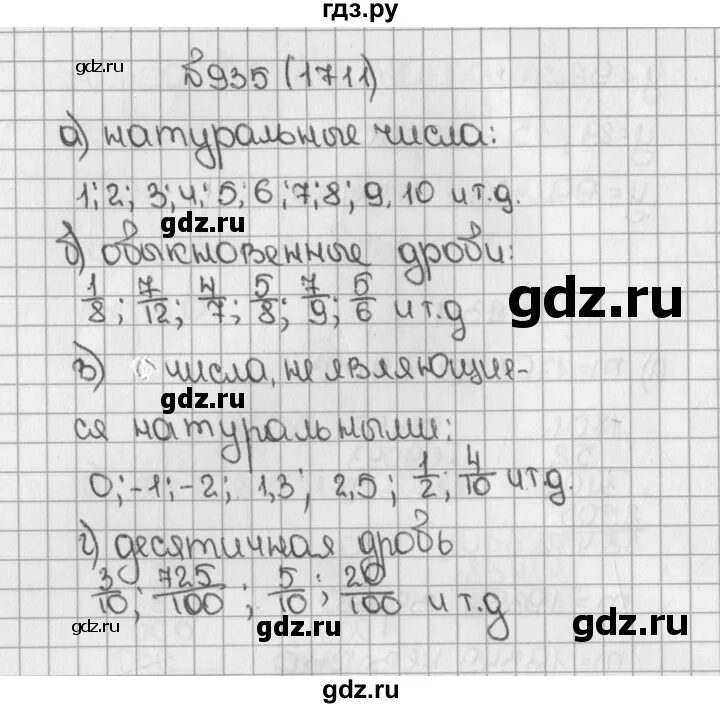 гдз.ру
gdz.ru
№935 (1711)
а) натуральные числа:
1; 2; 3; 4; 5; 6; 7; 8; 9, 10 и т.д.
gdz.ru
б) обыкновенные дроби:
gdz.ru
1/8; 7/12; 4/7; 5/8; 7/9; 5/6 и т.д
в) числа, не являющие-
gdz.ru
ся натуральными:
0; -1; -2; 1,3; 2,5; 1/2; 4/10 и т.д.
г) десятичная дробь
3/10; 725/100; 5/10; 20/100 и т.д
gdz.ru
gdz.ru
gdz.ru
gdz.ru